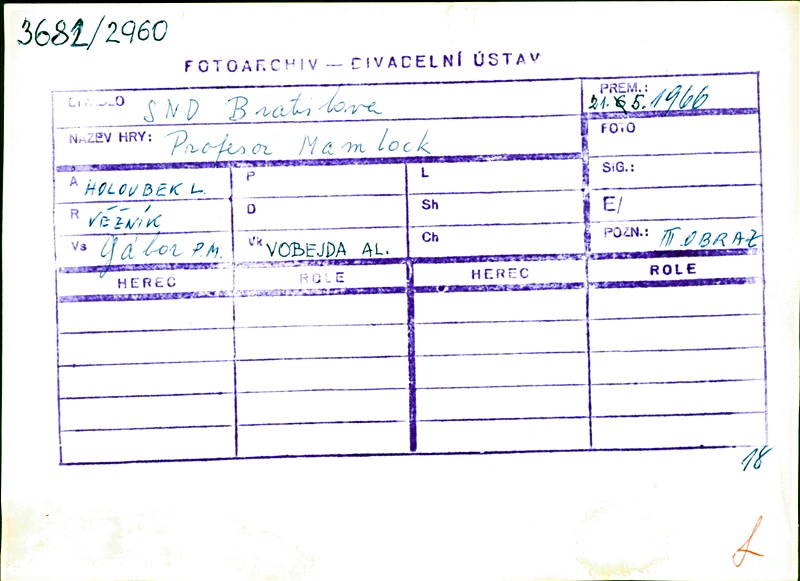 3681/2960
FOTOARCHIV — DIVADELNÍ ÚSTAV
DIVADLO SND Bratislava
PREM.: 21.5.1966
NÁZEV HRY: Profesor Mamlock
FOTO
A HOLOUBEK L. P L SIG.:
R VĚZNÍK D Sh E/
Vs Gábor P.M. Vk VOBEJDA AL. Ch POZN.: III. OBRAZ
HEREC ROLE HEREC ROLE
18